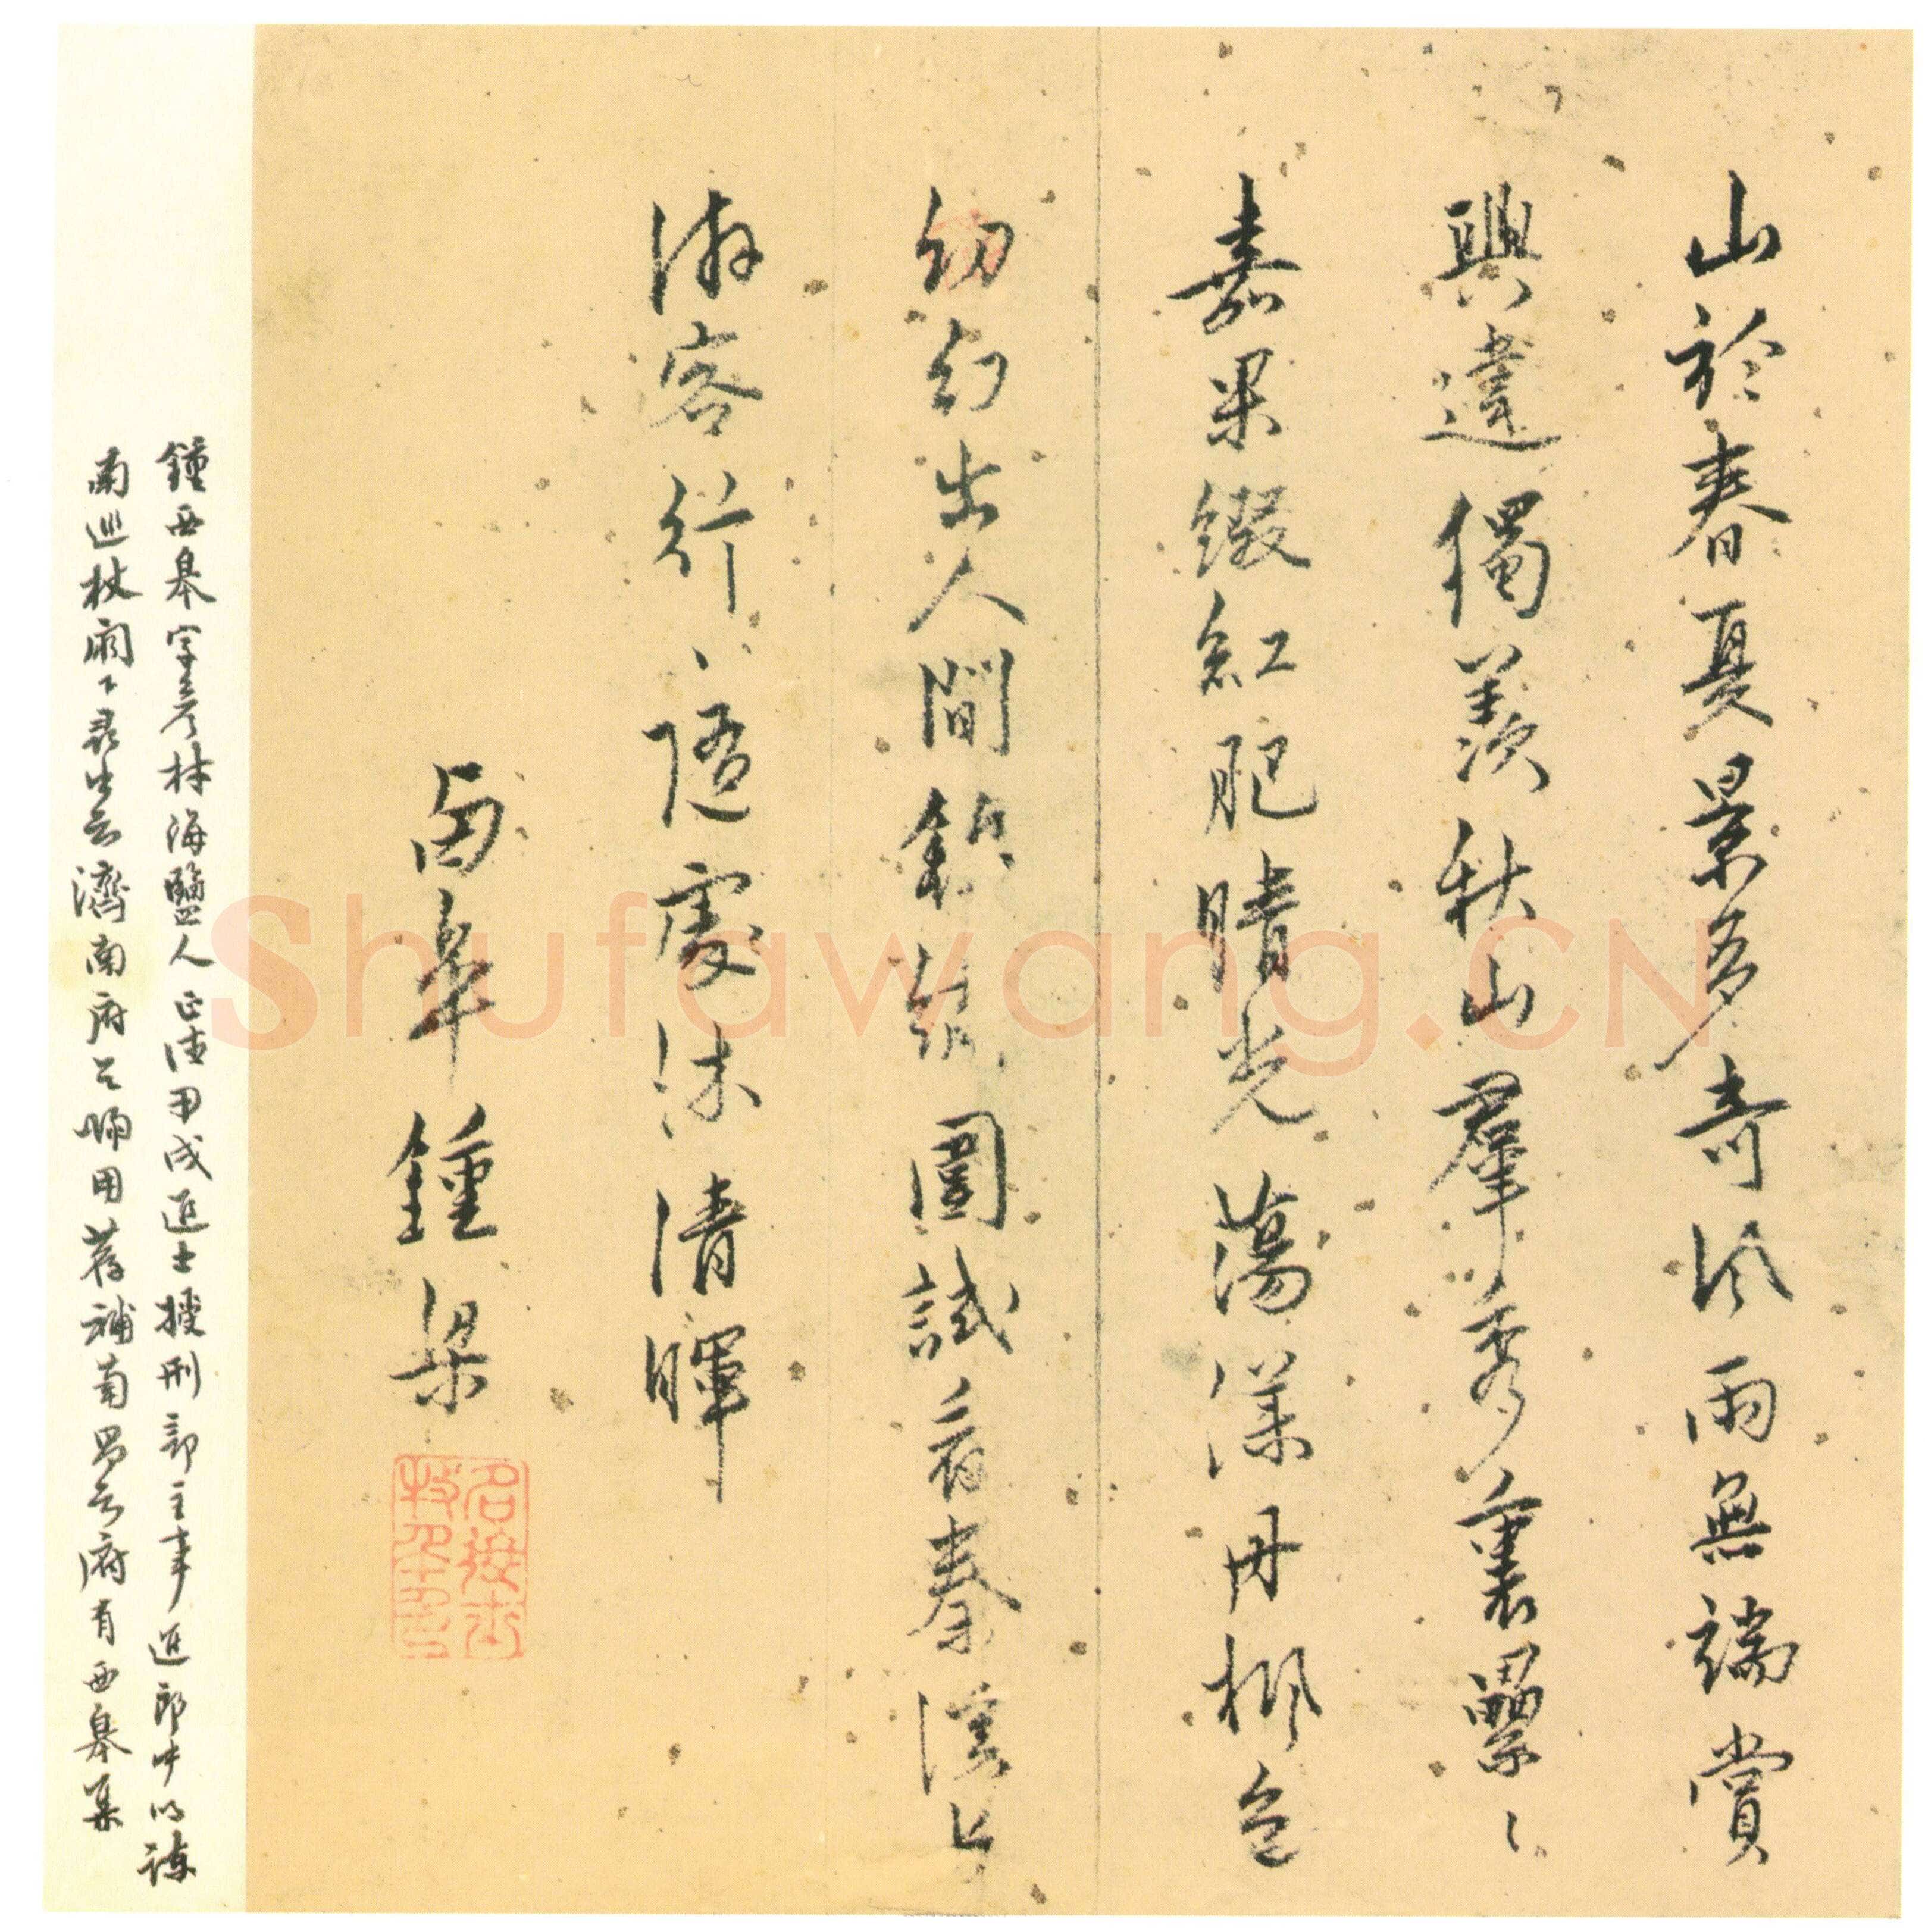 山於春夏景多奇風雨無端賞
興違獨羨秋山羣秀叢纍〻
嘉果綴紅肥晴光蕩漾丹楓色
幻幻出人間錦繡圍試看秦溪与
游客行〻隨處沐清暉
西皋鍾梁
鍾西皋字彥材海鹽人正德甲戌進士授刑部主事進郎中以諫
南巡杖闕下尋出知濟南府以師用荐補南昌知府有西皋集
Shufawang.CN